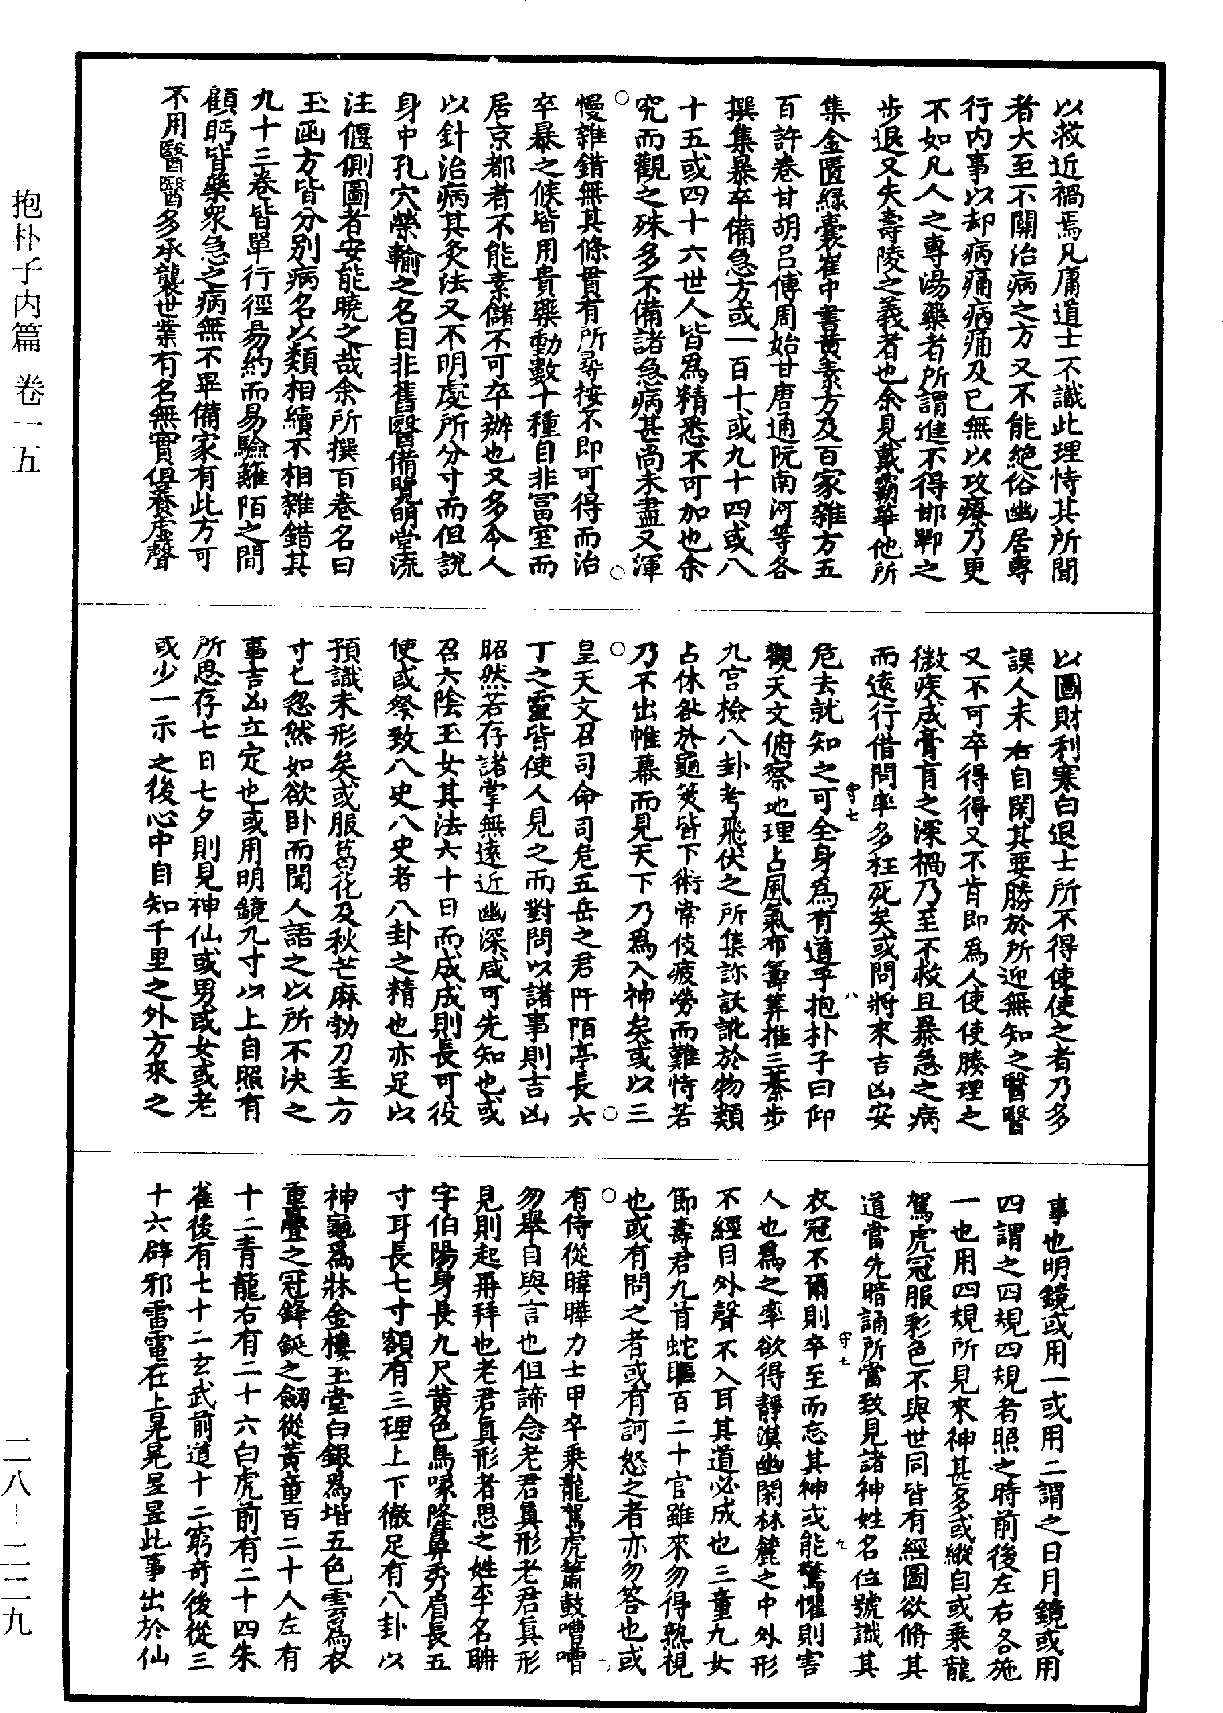 以救近禍焉凡庸道士不識此理恃其所聞
者大至不關治病之方又不能絶俗幽居專
行内事以却病痛病痛及已無以攻療乃更
不如凡人之專湯藥者所謂進不得邯鄲之
步退又失壽陵之義者也余見戴霸華他所
集金匱緑囊崔中書黄素方及百家雜方五
百許卷甘胡吕傅周始甘唐通阮南河等各
撰集暴卒備急方或一百十或九十四或八
十五或四十六世人皆爲精悉不可加也余
究而觀之殊多不備諸急病甚尚未盡又渾
慢雜錯無其條貫有所尋按不即可得而治
卒暴之候皆用貴藥動數十種自非富室而
居京都者不能素儲不可卒辦也又多令人
以針治病其灸法又不明處所分寸而但説
身中孔穴榮輸之名自非舊醫備覽明堂流
注偃側圖者安能曉之哉余所撰百卷名曰
玉函方皆分别病名以類相續不相雜錯其
九十三卷皆單行徑易約而易驗籬陌之間
顧眄皆藥衆急之病無不畢備家有此方可
不用醫醫多承襲世業有名無實但養虚聲
以圖財利寒白退士所不得使使之者乃多
誤人未若自閑其要勝於所迎無知之醫醫
又不可卒得得又不肯即爲人使使腠理之
微疾成膏肓之深禍乃至不救且暴急之病
而遠行借問率多枉死矣或問將來吉凶安
危去就知之可全身爲有道乎抱朴子曰仰
觀天文俯察地理占風氣布籌筭推三棊步
九宫檢八卦考飛伏之所集訞訛於物類
占休咎於龜筴皆下術常伎疲勞而難恃若
乃不出帷幕而見天下乃爲入神矣或以三
皇天文召司命司危五岳之君阡陌亭長六
丁之靈皆使人見之而對問以諸事則吉凶
昭然若存諸掌無遠近幽深咸可先知也或
召六陰玉女其法六十日而成成則長可役
使或祭致八史八史者八卦之精也亦足以
預識未形矣或服葛花及秋芒麻勃刀圭方
寸匕忽然如欲卧而聞人語之以所不決之
事吉凶立定也或用明鏡九寸以上自照有
所思存七日七夕則見神仙或男或女或老
或少一示之後心中自知千里之外方來之
事也明鏡或用一或用二謂之日月鏡或用
四謂之四規四規者照之時前後左右各施
一也用四規所見來神甚多或縱自或乘龍
駕虎冠服彩色不與世同皆有經圖欲脩其
道當先暗誦所當致見諸神姓名位號識其
衣冠不爾則卒至而忘其神或能驚懼則害
人也爲之率欲得靜漠幽閑林麓之中外形
不經目外聲不入耳其道必成也三童九女
節壽君九首蛇軀百二十官雖來勿得熟視
也或有問之者或有訶怒之者亦勿答也或
有侍從暐曄力士甲卒乘龍駕虎簫鼓嘈嘈
勿舉目與言也但諦念老君真形老君真形
見則起再拜也老君真形者思之姓李名聃
字伯陽身長九尺黄色鳥喙隆鼻秀眉長五
寸耳長七寸額有三理上下徹足有八卦以
神龜爲牀金樓玉堂白銀爲堦五色雲爲衣
重疊之冠鋒鋋之劒從黄童百二十人左有
十二青龍右有二十六白虎前有二十四朱
雀後有七十二玄武前道十二窮奇後從三
十六辟邪雷電在上晃晃昱昱此事出於仙
守七
八
守七
九
抱朴子内篇 卷一五
二八—二二九